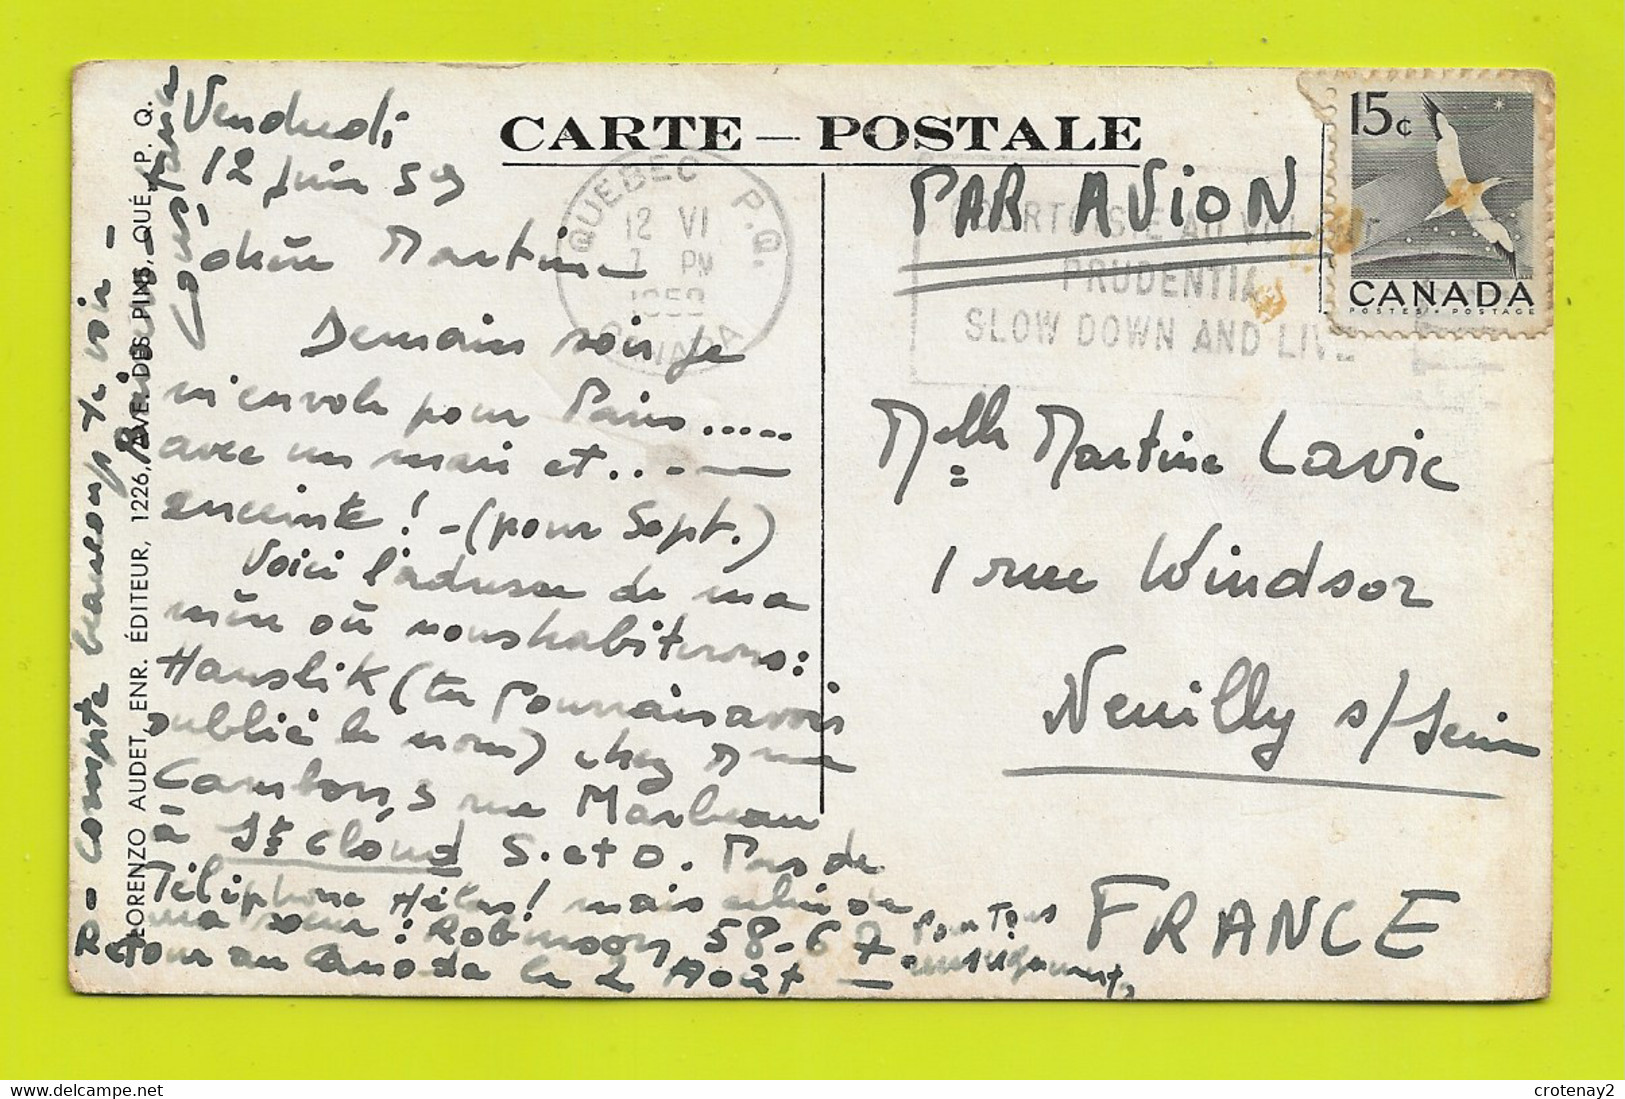 CARTE — POSTALE
Vendredi
12 Juin 59
Chère Martine
Demain soir je
m'envole pour Paris .....
avec un mari et .. . — —
enceinte ! - (pour Sept.)
Voici l'adresse de ma
mère où nous habiterons :
Hauslik (tu pourrais avoir
oublié le nom) chez Mme
Cambon, 5 rue Marbeau
à St Cloud S. et O. Pas de
Téléphone Hélas ! mais celui de
ma sœur : Robinson 58-67
pour tous
renseignements,
Retour au Canada le 2 Août —
Je compte beaucoup te voir -
LORENZO AUDET, ENR. ÉDITEUR, 1226, AVE. DES PINS, QUÉ. P. Q.
QUEBEC P.Q.
12 VI
7 PM
1959
CANADA
COURTOISIE AU VOLANT
PRUDENTIA
SLOW DOWN AND LIVE
PAR AVION
15c
CANADA
POSTES · POSTAGE
Melle Martine Lavie
1 rue Windsor
Neuilly s/Seine
FRANCE
crotenay2